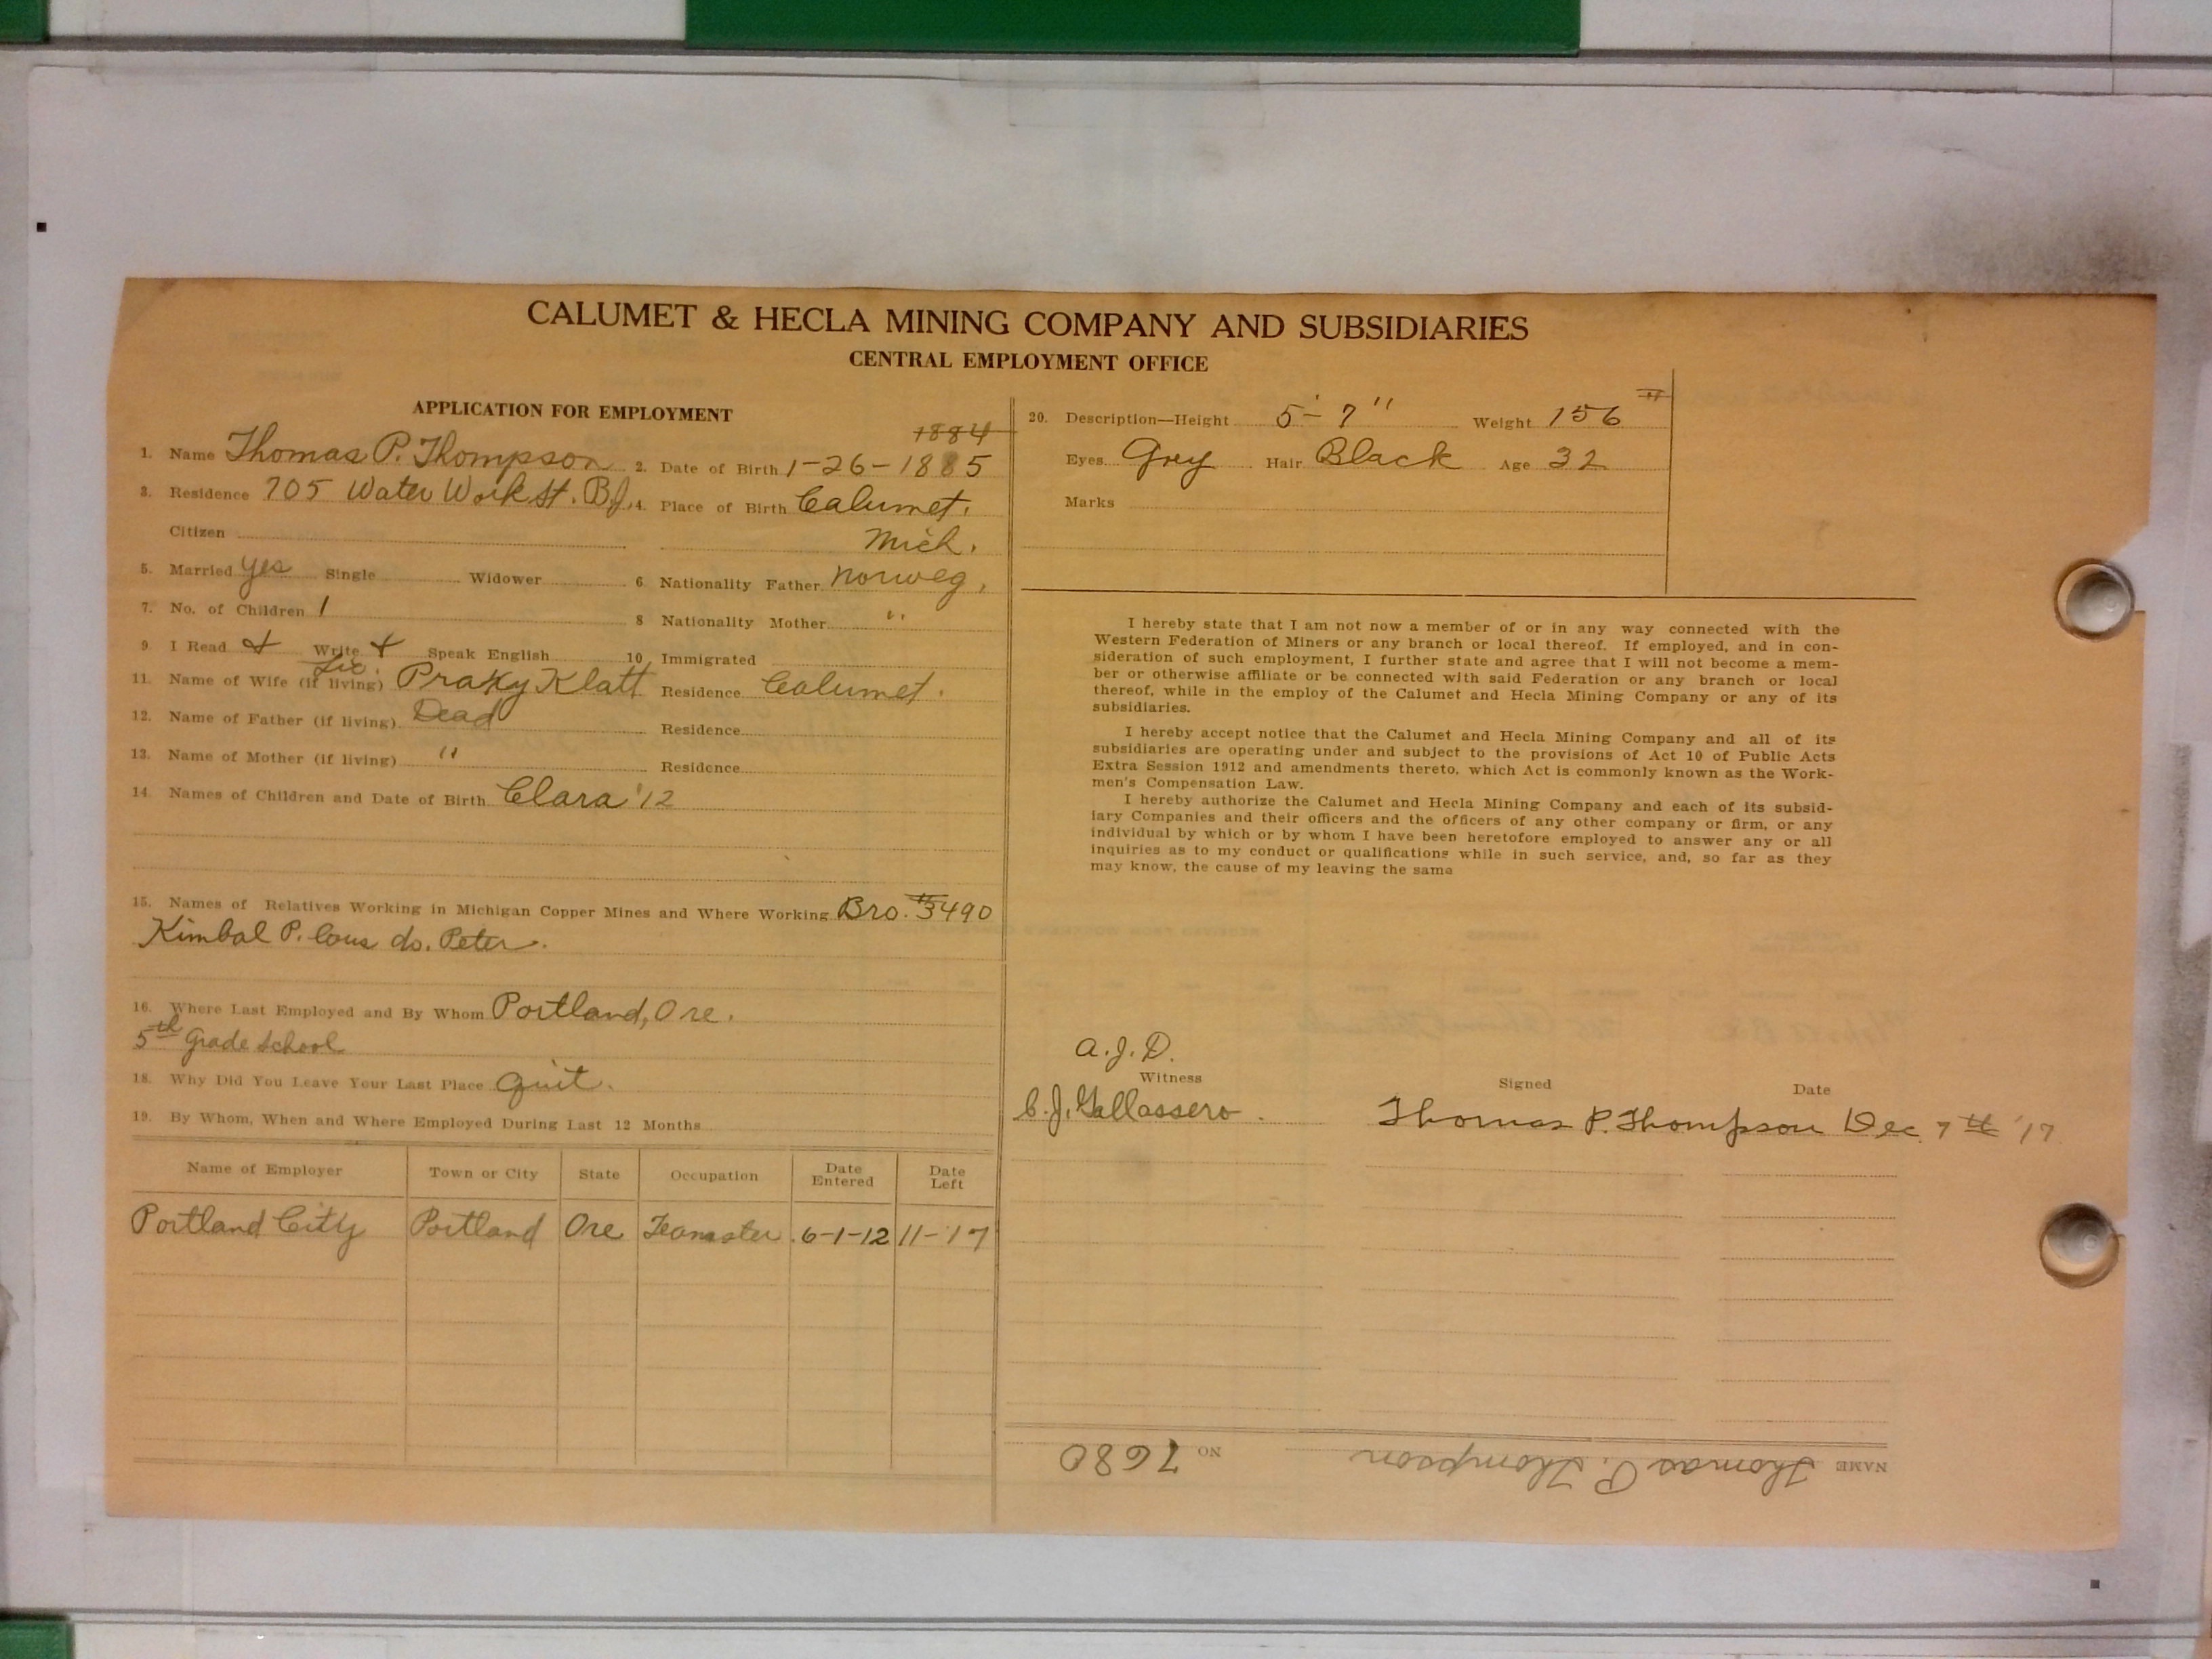 CALUMET & HECLA MINING COMPANY AND SUBSIDIARIES
CENTRAL EMPLOYMENT OFFICE
APPLICATION FOR EMPLOYMENT
1884
1. Name Thomas P. Thompson 2. Date of Birth 1-26-1885
3. Residence 705 Water Work St. B.J. 4. Place of Birth Calumet,
Citizen Mich.
5. Married yes Single Widower 6. Nationality Father Norweg,
7. No. of Children 1 8 Nationality Mother "
9. I Read + Write + Speak English 10 Immigrated
11. Name of Wife (if living) Klatt Residence Calumet.
12. Name of Father (if living) Dead Residence
13. Name of Mother (if living) " Residence
14. Names of Children and Date of Birth Clara '12
15. Names of Relatives Working in Michigan Copper Mines and Where Working Bro. #3490
Kimbal P. Cous do. Peter.
16. Where Last Employed and By Whom Portland, Ore.
5th Grade School
18. Why Did You Leave Your Last Place Quit.
19. By Whom, When and Where Employed During Last 12 Months
Name of Employer Town or City State Occupation Date Entered Date Left
Portland City Portland Ore Teamster 6-1-12 11-'17
20. Description—Height 5'-7" Weight 156 #
Eyes Grey Hair Black Age 32
Marks
I hereby state that I am not now a member of or in any way connected with the
Western Federation of Miners or any branch or local thereof. If employed, and in con-
sideration of such employment, I further state and agree that I will not become a mem-
ber or otherwise affiliate or be connected with said Federation or any branch or local
thereof, while in the employ of the Calumet and Hecla Mining Company or any of its
subsidiaries.
I hereby accept notice that the Calumet and Hecla Mining Company and all of its
subsidiaries are operating under and subject to the provisions of Act 10 of Public Acts
Extra Session 1912 and amendments thereto, which Act is commonly known as the Work-
men's Compensation Law.
I hereby authorize the Calumet and Hecla Mining Company and each of its subsid-
iary Companies and their officers and the officers of any other company or firm, or any
individual by which or by whom I have been heretofore employed to answer any or all
inquiries as to my conduct or qualifications while in such service, and, so far as they
may know, the cause of my leaving the same
A.J.D.
Witness Signed Date
C.J. Gallassero. Thomas P. Thompson Dec. 7th '17
NAME Thomas P. Thompson NO 7680